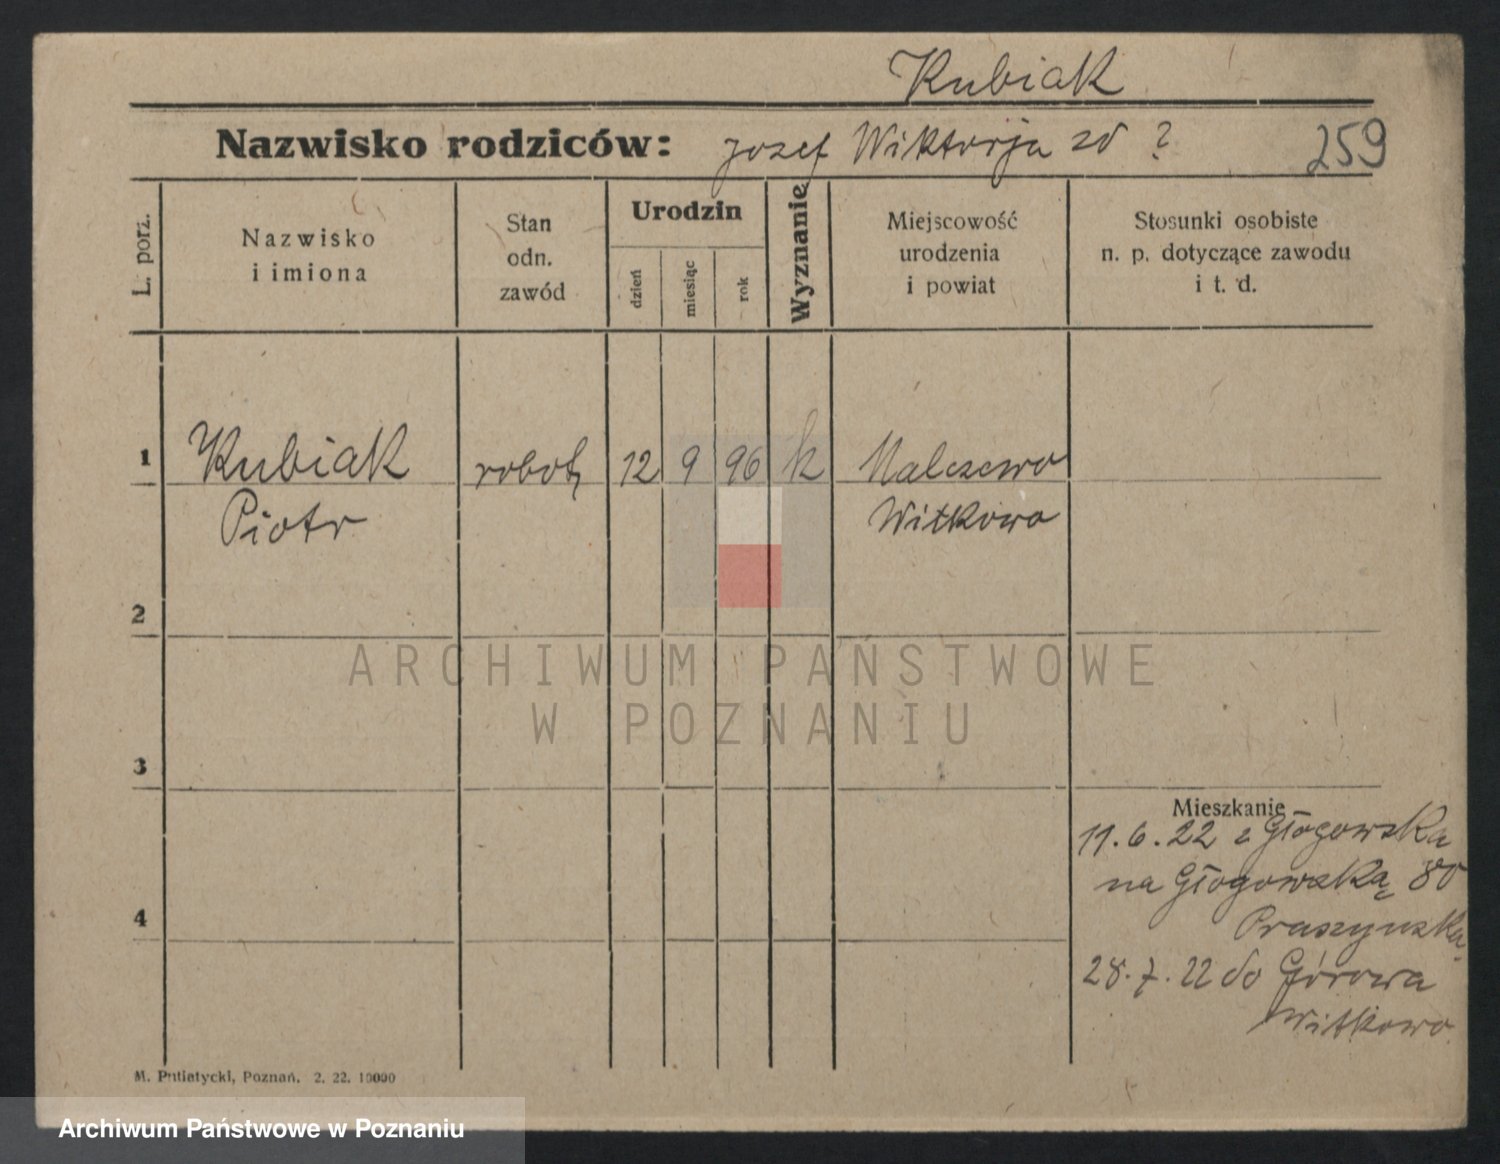 Kubiak
Nazwisko rodziców: Jozef Wiktorja zd ?
259
L. porz.
Nazwisko
i imiona
Stan
odn.
zawód
Urodzin
dzień
miesiąc
rok
Wyznanie
Miejscowość
urodzenia
i powiat
Stosunki osobiste
n. p. dotyczące zawodu
i t. d.
1 Kubiak robot, 12 9 96 k Malczewo
Piotr Witkowo
2
ARCHIWUM PAŃSTWOWE
W POZNANIU
3
Mieszkanie
11.6.22 z Głogowska
na Głogowską 80
Pruszynska
4
28.7.22 do Górowa
Witkowo
M. Putiatycki, Poznań. 2. 22. 10000
Archiwum Państwowe w Poznaniu